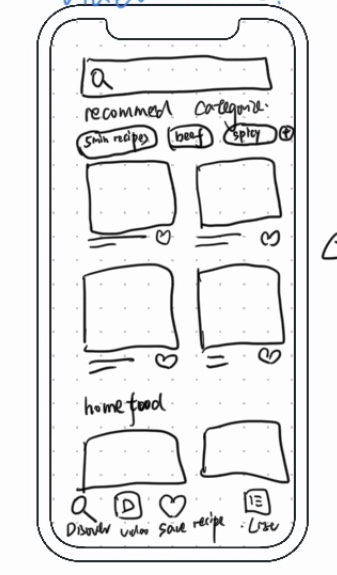 recommed categorie.
5min recipes beef spicy
home food
Disover video save recipe . List